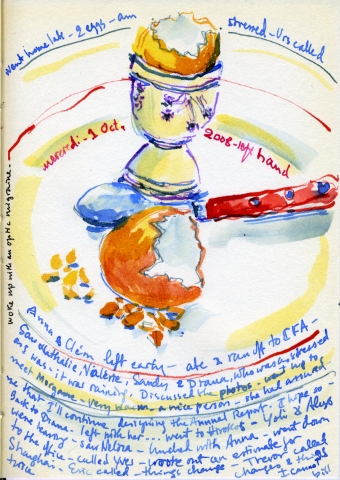 Went home late - 2 eggs - am
stressed - Urs called
mercredi - 1 Oct.
2008 - left hand
woke up with an optic migraine -
Anna & Clém left early - ate & ran off to EFA -
Saw Nathalie, Valérie, Sandy & Diana, who was as stressed
as I was - it was raining. Discussed the photos - went up to
meet - very warm - a nice person - she had assured
me that I'll continue designing the Annual Report. I hope so -
Back to Diana - left with her... went to - & Alexis
were leaving - saw - lunched with Anna - went down
to the office - called Yves - wrote out an estimate for
Shanghai - Eric called - things change - Trevor called
twice
changes & things
I cannot
bill